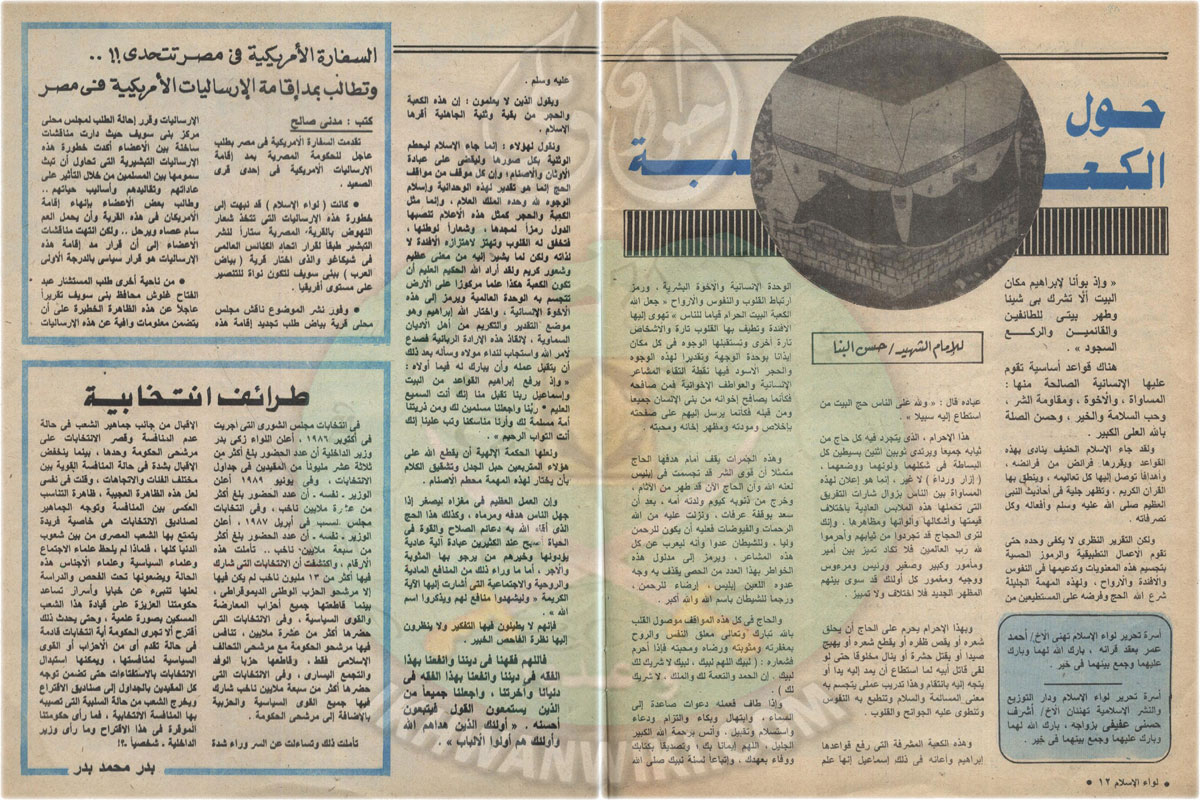 حول
الكعـــبة
للإمام الشهيد / حسن البنا
« وإذ بوأنا لإبراهيم مكان
البيت ألا تشرك بى شيئا
وطهر بيتى للطائفين
والقائمين والركـــع
السجود » .
هناك قواعد أساسية تقوم
عليها الإنسانية الصالحة منها :
المساواة ، والأخوة ، ومقاومة الشر ،
وحب السلامة والخير ، وحسن الصلة
بالله العلى الكبير .
ولقد جاء الإسلام الحنيف ينادى بهذه
القواعد ويقررها فرائض من فرائضه ،
وأهدافا توصل إليها كل تعاليمه ، وينطق بها
القرآن الكريم ، وتظهر جلية فى أحاديث النبى
العظيم صلى الله عليه وسلم وأفعاله وكل
تصرفاته .
ولكن التقرير النظرى لا يكفى وحده حتى
تقوم الأعمال التطبيقية والرموز الحسية
بتجسيم هذه المعنويات وتدعيمها فى النفوس
والأفئدة والأرواح ، ولهذه المهمة الجليلة
شرع الله الحج وفرضه على المستطيعين من
أسرة تحرير لواء الإسلام تهنئ الأخ / أحمد
عمر بعقد قرانه ، بارك الله لهما وبارك
عليهما وجمع بينهما فى خير .
أسرة تحرير لواء الإسلام ودار التوزيع
والنشر الإسلامية تهنئان الأخ / أشرف
حسنى عفيفى بزواجه ، بارك الله لهما
وبارك عليهما وجمع بينهما فى خير .
● لواء الإسلام ١٢ ●
عباده قال : « ولله على الناس حج البيت من
استطاع إليه سبيلا »
هذا الإحرام ، الذى يتجرد فيه كل حاج من
ثيابه جميعا ويرتدى ثوبين اثنين بسيطين كل
البساطة فى شكلهما ولونهما ووضعهما ،
( إزار ورداء ) لا غير ، إنما هو إعلان لهذه
المساواة بين الناس بزوال شارات التفريق
التى تحملها هذه الملابس العادية باختلاف
قيمتها وأشكالها وألوانها ومظاهرها . وإنك
لترى الحجاج قد تجردوا من ثيابهم وأحرموا
لله رب العالمين فلا تكاد تميز بين أمير
ومأمور وكبير وصغير ورئيس ومرءوس
ووجيه ومغمور كل أولئك قد سوى بينهم
المظهر الجديد فلا اختلاف ولا تمييز .
وبهذا الإحرام يحرم على الحاج أن يحلق
شعره أو يقص ظفره أو يقطع شعره أو يهيج
صيدا أو يقتل حشرة أو ينال مخلوقا حتى لو
لقى قاتل أبيه لما استطاع أن يمد إليه يدا أو
يتجه إليه بانتقام وهذا تدريب عملى يتجسم به
معنى المسالمة والسلام وتنطبع به النفوس
وتنطوى عليه الجوانح والقلوب .
وهذه الكعبة المشرفة التى رفع قواعدها
إبراهيم وأعانه فى ذلك إسماعيل إنها علم
الوحدة الإنسانية والأخوة البشرية ، ورمز
ارتباط القلوب والنفوس والأرواح « جعل الله
الكعبة البيت الحرام قياما للناس » تهوى إليها
الأفندة وتطيف بها القلوب تارة والأشخاص
تارة أخرى وتستقبلها الوجوه فى كل مكان
إيذانا بوحدة الوجهة وتقديرا لهذه الوجوه
والحجر الأسود فيها نقطة التقاء المشاعر
الإنسانية والعواطف الإخوانية فمن صافحه
فكأنما يصافح إخوانه من بنى الإنسان جميعا
ومن قبله فكأنما يرسل إليهم على صفحته
بإخلاص ومودته ومظهر إخائه ومحبته .
وهذه الجمرات يقف أمام هدفها الحاج
متمثلا أن قوى الشر قد تجسمت فى إبليس
لعنه الله وأن الحاج الآن قد طهر من الآثام ،
وخرج من ذنوبه كيوم ولدته أمه ، بعد أن
سعد بوقفة عرفات ، ونزلت عليه من الله
الرحمات والفيوضات فعليه أن يكون للرحمن
وليا ، وللشيطان عدوا وأنه ليعرب عن كل
هذه المشاعر ، ويرمز إلى مدلول هذه
الخواطر بهذا العدد من الحصى يقذف به وجه
عدوه اللعين إبليس إرضاء للرحمن ،
ورجما للشيطان باسم الله والله أكبر .
والحاج فى كل هذه المواقف موصول القلب
بالله تبارك وتعالى معلق النفس والروح
بمغفرته ومثوبته ورضاه ومحبته فإذا أحرم
فشعاره : ( لبيك اللهم لبيك ، لبيك لا شريك لك
لبيك . إن الحمد والنعمة لك والملك . لا شريك
لك ) .
وإذا طاف فعمله دعوات صاعدة إلى
السماء ، وابتهال وبكاء والتزام ودعاء
واستسلام وتقبيل ، وأنس برحمة الله الكبير
الجليل ، اللهم إيمانا بك ; وتصديقا بكتابك
ووفاء بعهدك ، وإتباعا لسنة نبيك صلى الله
عليه وسلم .
ويقول الذين لا يعلمون : إن هذه الكعبة
والحجر من بقية وثنية الجاهلية أقرها
الإسلام .
ونقول لهؤلاء : إنما جاء الإسلام ليحطم
الوثنية بكل صورها وليقضى على عبادة
الأوثان والأصنام; وإن كل موقف من مواقف
الحج إنما هو تقدير لهذه الوحدانية وإسلام
الوجوه لله وحده الملك العلام ، وإنما مثل
الكعبة والحجر كمثل هذه الأعلام تنصبها
الدول رمزاً لمجدها ، وشعاراً لوطنها ،
فتخفق له القلوب وتهتز لاهتزازه الأفندة لا
لذاته ولكن لما يشير إليه من معنى عظيم
وشعور كريم ولقد أراد الله الحكيم العليم أن
تكون الكعبة هكذا علما مركوزا على الأرض
تتجسم به الوحدة العالمية ويرمز إلى هذه
الأخوة الإنسانية ، واختار الله إبراهيم وهو
موضع التقدير والتكريم من أهل الأديان
السماوية ، لإنقاذ هذه الإرادة الربانية فصدع
لأمر الله واستجاب لنداء مولاه وسأله بعد ذلك
أن يتقبل عمله وأن يبارك له فيما أولاه :
« وإذ يرفع إبراهيم القواعد من البيت
وإسماعيل ربنا تقبل منا إنك أنت السميع
العليم * ربنا واجعلنا مسلمين لك ومن ذريتنا
أمة مسلمة لك وأرنا مناسكنا وتب علينا إنك
أنت التواب الرحيم » .
ولعلها الحكمة الإلهية أن يقطع الله على
هؤلاء المتربعين حبل الجدل وتشقيق الكلام
بأن يختار لهذه المهمة محطم الأصنام .
وإن العمل العظيم فى مغزاه ليصغر إذا
جهل الناس هدفه ومرماه ، وكذلك هذا الحج
الذى أفاء الله به دعائم الصلاح والقوة فى
الحياة أصبح عند الكثيرين عبادة آلية عادية
يؤدونها وخيرهم من يرجو بها المثوبة
والأجر ، أما ما وراء ذلك من المنافع المادية
والروحية والاجتماعية التى أشارت إليها الآية
الكريمة « ليشهدوا منافع لهم ويذكروا اسم
الله » .
فإنهم لا يطيلون فيها التفكير ولا ينظرون
إليها نظرة الفاحص الخبير .
فاللهم فقهنا فى ديننا وانفعنا بهذا
الفقه فى ديننا وانفعنا بهذا الفقه فى
دنيانا وآخرتنا ، واجعلنا جميعاً من
الذين يستمعون القول فيتبعون
أحسنه . « أولئك الذين هداهم الله
وأولئك هم أولوا الألباب » .
السفارة الأمريكية فى مصر تتحدى !! . .
وتطالب بمد إقامة الإرساليات الأمريكية فى مصر
كتب : مدنى صالح
تقدمت السفارة الأمريكية فى مصر بطلب
عاجل للحكومة المصرية بمد إقامة
الإرساليات الأمريكية فى إحدى قرى
الصعيد .
● كانت ( لواء الإسلام ) قد نبهت إلى
خطورة هذه الإرساليات التى تتخذ شعار
النهوض بالقرية المصرية ستاراً لنشر
التبشير طبقاً لقرار اتحاد الكنائس العالمى
فى شيكاغو والذى اختار قرية ( بياض
العرب ) ببنى سويف لتكون نواة للتنصير
على مستوى أفريقيا .
● وفور نشر الموضوع ناقش مجلس
محلى قرية بياض طلب تجديد إقامة هذه
الإرساليات وقرر إحالة الطلب لمجلس محلى
مركز بنى سويف حيث دارت مناقشات
ساخنة بين الأعضاء أكدت خطورة هذه
الإرساليات التبشيرية التى تحاول أن تبث
سمومها بين المسلمين من خلال التأثير على
عاداتهم وتقاليدهم وأساليب حياتهم ..
وطالب بعض الأعضاء بإنهاء إقامة
الأمريكان فى هذه القرية وأن يحمل العم
سام عصاه ويرحل .. ولكن انتهت مناقشات
الأعضاء إلى أن قرار مد إقامة هذه
الإرساليات هو قرار سياسى بالدرجة الأولى
● من ناحية أخرى طلب المستشار عبد
الفتاح غلوش محافظ بنى سويف تقريراً
عاجلاً عن هذه الظاهرة الخطيرة على أن
يتضمن معلومات وافية عن هذه الإرساليات
طرائف انتخابية
فى انتخابات مجلس الشورى التى أجريت
فى أكتوبر ١٩٨٦ ، أعلن اللواء زكى بدر
وزير الداخلية أن عدد الحضور بلغ أكثر من
ثلاثة عشر مليونا من المقيدين فى جداول
الانتخابات ، وفى يونيو ١٩٨٩ أعلن
الوزير ـ نفسه ـ أن عدد الحضور بلغ أكثر
من عشرة ملايين ناخب ، وفى انتخابات
مجلس الشعب فى أبريل ١٩٨٧ ، أعلن
الوزير ـ نفسه ـ أن عدد الحضور بلغ أكثر
من سبعة ملايين ناخب .. تأملت هذه
الأرقام ، واكتشفت أن الانتخابات التى شارك
فيها أكثر من ١٣ مليون ناخب لم يكن فيها
إلا مرشحو الحزب الوطنى الديموقراطى ،
بينما قاطعتها جميع أحزاب المعارضة
والقوى السياسية ، وفى الانتخابات التى
حضرها أكثر من عشرة ملايين ، تنافس
فيها مرشحو الحكومة مع مرشحى التحالف
الإسلامى فقط ، وقاطعها حزبا الوفد
والتجمع اليسارى ، وفى الانتخابات التى
حضرها أكثر من سبعة ملايين ناخب شارك
فيها جميع القوى السياسية والحزبية
بالإضافة إلى مرشحى الحكومة .
تأملت ذلك وتساءلت عن السر وراء شدة
الاقبال من جانب جماهير الشعب فى حالة
عدم المنافسة وقصر الانتخابات على
مرشحى الحكومة وحدها ، بينما ينخفض
الإقبال بشدة فى حالة المنافسة القوية بين
مختلف الفئات والاتجاهات ، وقلت فى نفسى
لعل هذه الظاهرة العجيبة ، ظاهرة التناسب
العكسى بين المنافسة وتوجه الجماهير
لصناديق الانتخابات هى خاصية فريدة
يتمتع بها الشعب المصرى من بين شعوب
الدنيا كلها ، فلماذا لم يلحظ علماء الاجتماع
وعلماء السياسية وعلماء الأجناس هذه
الحالة ويضعونها تحت الفحص والدراسة
لعلها تنبىء عن خبايا وأسرار تساعد
حكومتنا العزيزة على قيادة هذا الشعب
المسكين بصورة علمية ، وحتى يحدث ذلك
أقترح ألا تجرى الحكومة أية انتخابات قادمة
فى حالة تقدم أى من الأحزاب أو القوى
السياسية لمنافستها ، ويمكنها استبدال
الانتخابات بالاستفتاءات حتى تضمن توجه
كل المقيدين بالجداول إلى صناديق الاقتراع
ويخرج الشعب من حالة السلبية التى تصيبه
بها المنافسة الانتخابية ، فما رأى حكومتنا
الموقرة فى هذا الاقتراح وما رأى وزير
الداخلية ـ شخصياً ـ ؟!
بدر محمد بدر